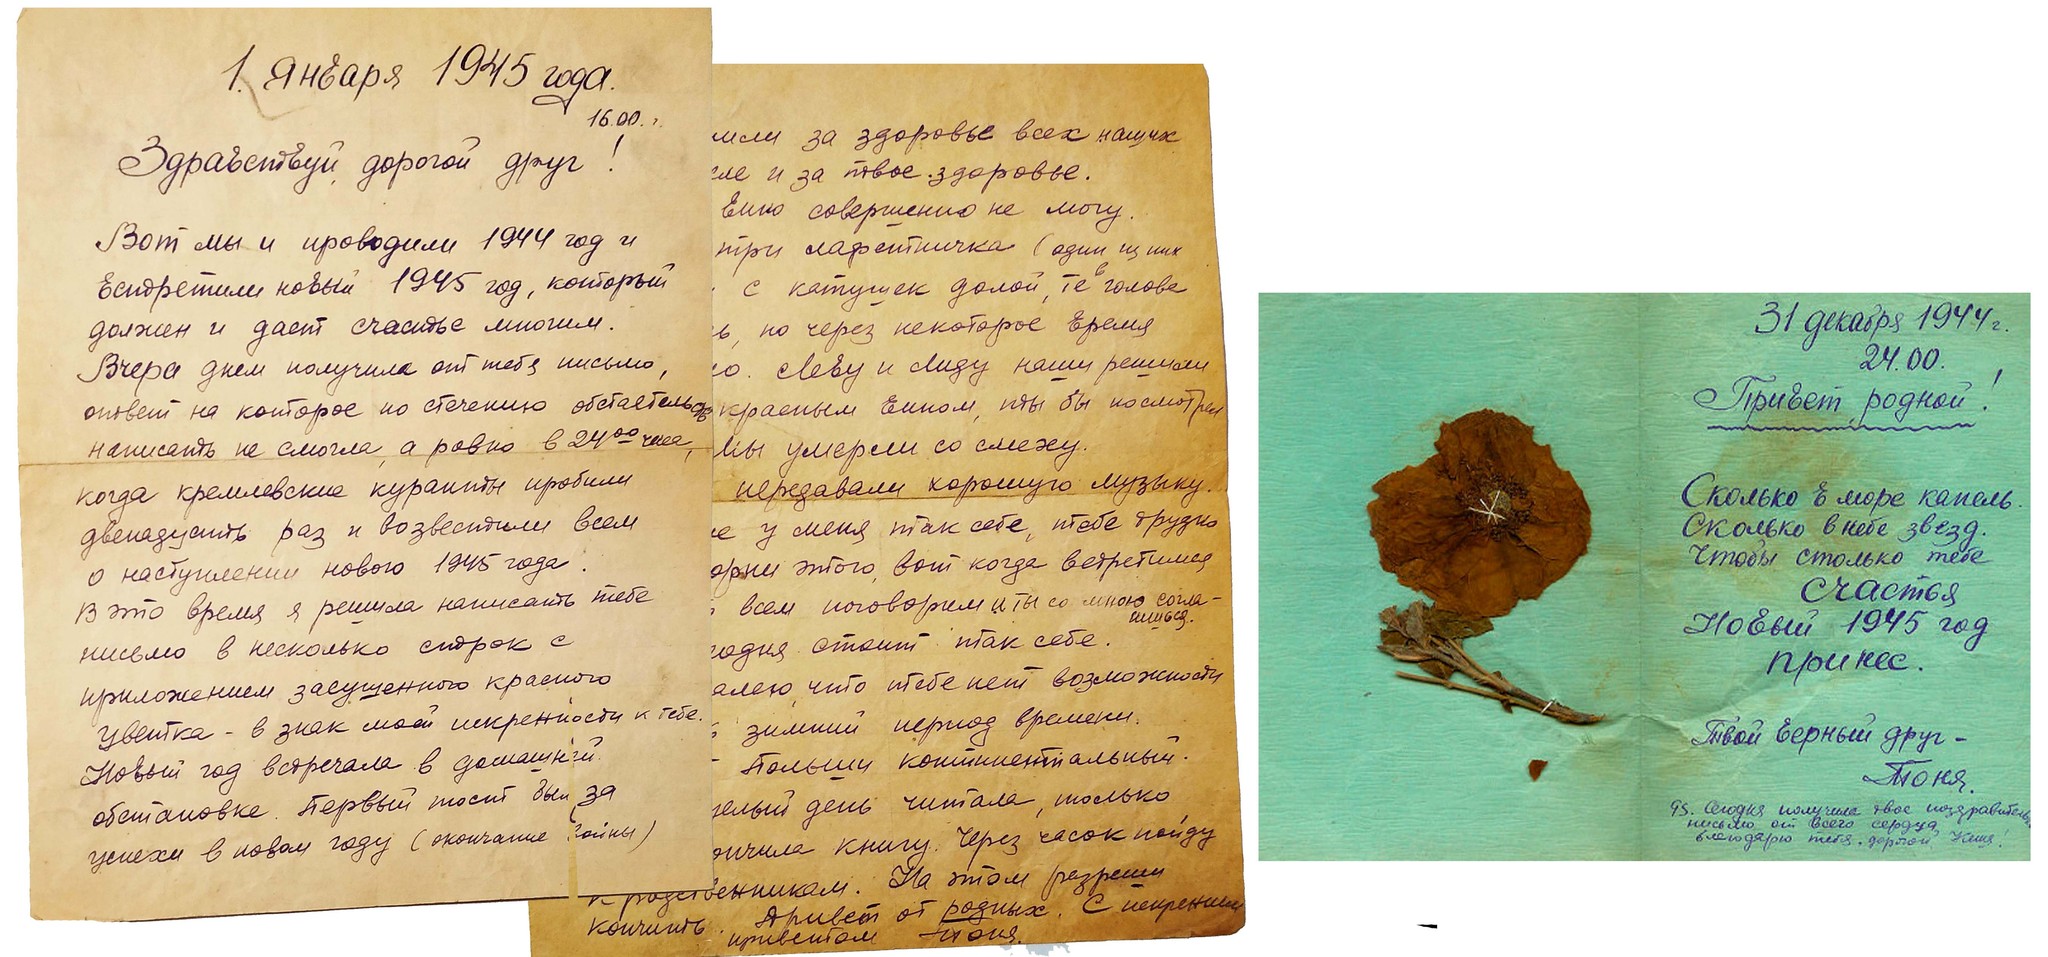 1. Января 1945 года.
16.00.
Здравствуй, дорогой друг!
Вот мы и проводили 1944 год и
встретили новый 1945 год, который
должен и даст счастье многим.
Вчера днем получила от тебя письмо,
ответ на которое по стечению обстоятельств
написать не смогла, а ровно в 24 00 часа,
когда кремлевские куранты пробили
двенадцать раз и возвестили всем
о наступлении нового 1945 года.
В это время я решила написать тебе
письмо в несколько строк с
приложением засушенного красного
цветка - в знак моей искренности к тебе.
Новый год встречала в домашней
обстановке. Первый тост был за
успехи в новом году (окончание войны)
за здоровье всех наших
и за твое здоровье.
совершенно не могу.
три лафетничка (один из них
с катушек долой, в голове
но через некоторое время
Леву и Лиду наши решили
красным вином, ты бы посмотрел
мы умерли со смеху.
передавали хорошую музыку.
у меня так себе, тебе трудно
этого, вот когда встретимся
всем поговорим и ты со мною согла-
сишься.
стоит так себе.
что тебе нет возможности
зимний период времени.
Польши континентальный.
день читала, только
книгу. Через часок пойду
к родственникам. На этом разреши
кончить. Привет от родных. С искренним
приветом Тоня.
31 декабря 1944 г.
24.00.
Привет, родной!
Сколько в море капель.
Сколько в небе звезд.
Чтобы столько тебе
счастья
Новый 1945 год
принес.
Твой верный друг -
Тоня.
Сегодня получила твое поздравительн.
письмо от всего сердца
благодарю тебя дорогой